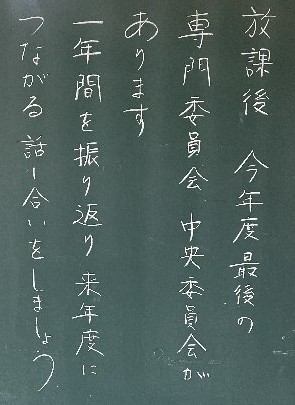 放課後 今年度最後の
専門委員会 中央委員会が
あります
一年間を振り返り 来年度に
つながる 話し合いをしましょう